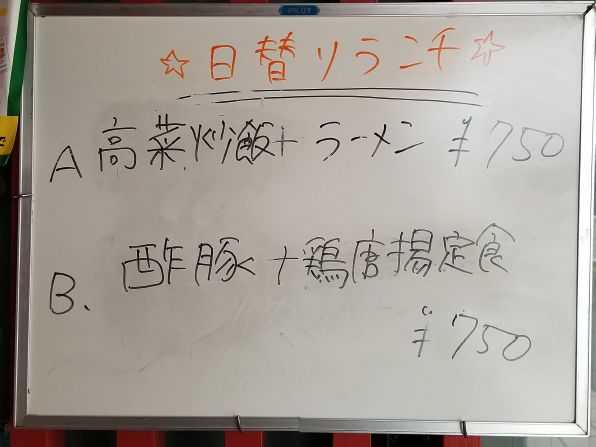 PILOT
☆日替ランチ☆
A 高菜炒飯+ラーメン ¥750
B. 酢豚+鶏唐揚定食
¥750